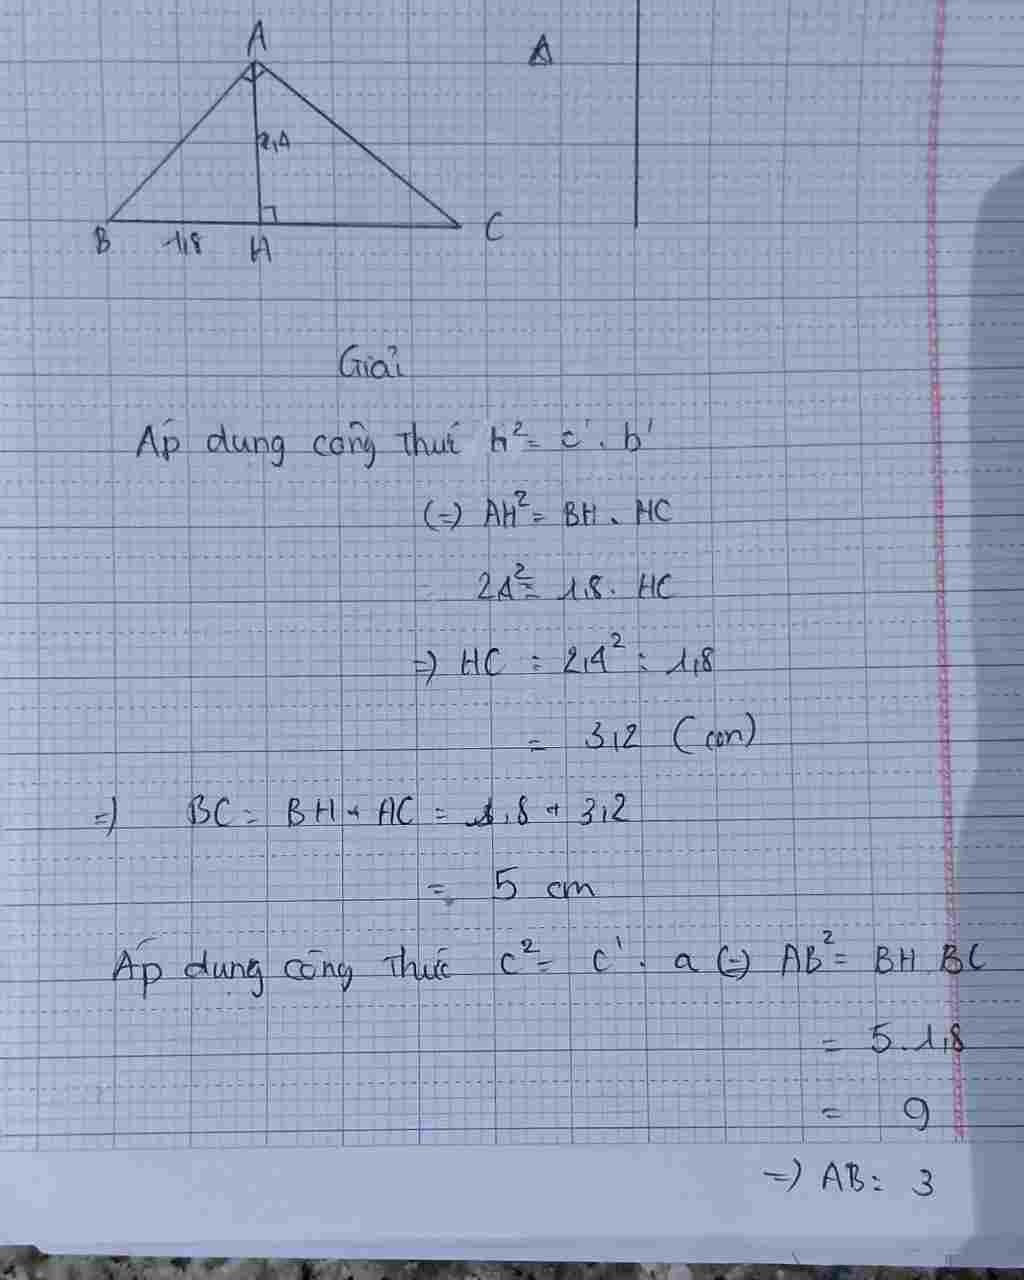 A
A
2,4
B
1,8
H
C
Giải
Áp dung công thưć h² = c' . b'
(=) AH² = BH . HC
2,4² = 1,8 . HC
=) HC = 2,4² : 1,8
= 3,2 (cm)
=) BC = BH + AC = 1,8 + 3,2
= 5 cm
Áp dụng công thức c² = c' . a (=) AB² = BH . BC
= 5 . 1,8
= 9
=) AB = 3